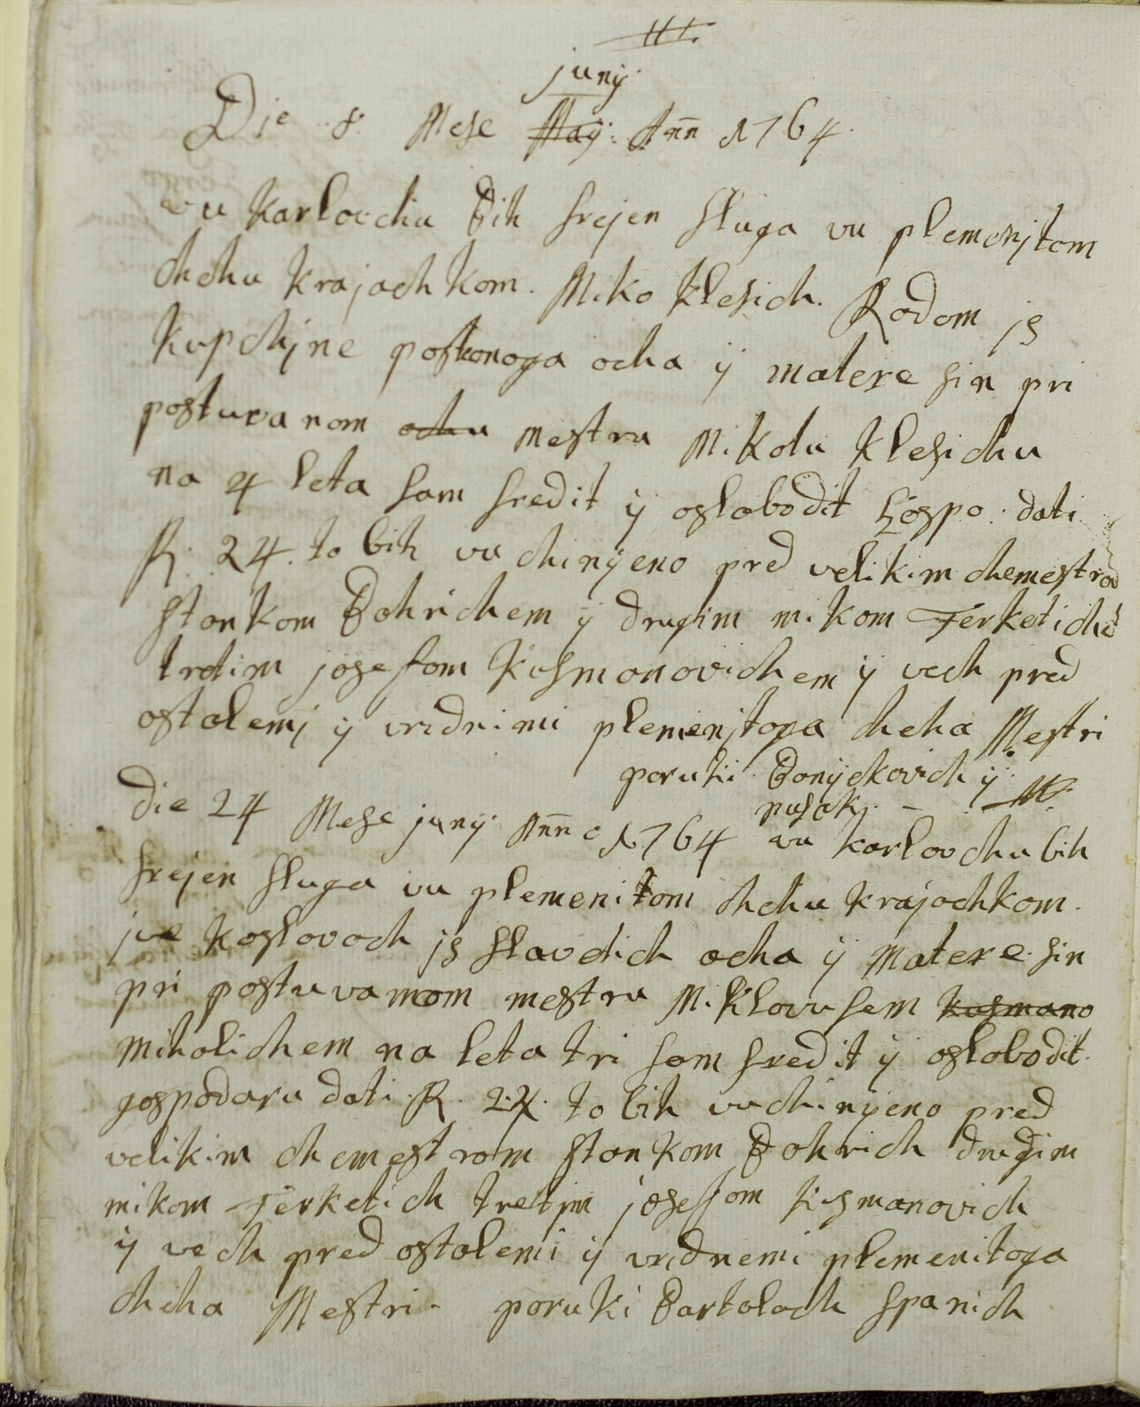 juny
Die 8 Mese May Ann 1764
vu Karlovchu Bih srejen sluga vu plemenjtom
chehu Krajachkom. Miko Klesich. Rodom js
Kupchjne postonoga ocha ÿ matere sin pri
postuvanom ochu mestru Mikolu Klesichu
na 4 leta sam sredit ÿ oslobodit Gospo. dati
R. 24. to bih vu chinÿeno pred velikim chemestrom
stankom Bahrichem ÿ drugim mikom Ferketiche
tretim josefom Kosmanovichem ÿ vech pred
ostalemj ÿ vridnimi plemenjtoga cheha Mestri
poruki Donÿchovich ÿ
pusak.
Die 24 Mese junÿ Anno 1764 vu karlovchu bih
srejen sluga vu plemenitom chehu krajachkom.
jve koslovach js slavdich ocha ÿ matere sin
pri postuvanom mestru Miklovusem kosmano
miholichem na leta tri sam sredit ÿ oslobodit.
gospodaru dati. R. 24. to bih vuchinÿeno pred
velikim chemestrom stankom Bahrich drugim
mikom Ferketich tretjm josefom kosmanovich
ÿ vech pred ostalemi ÿ vridnemi plemenitoga
cheha Mestri. poruki Bartolach spanich